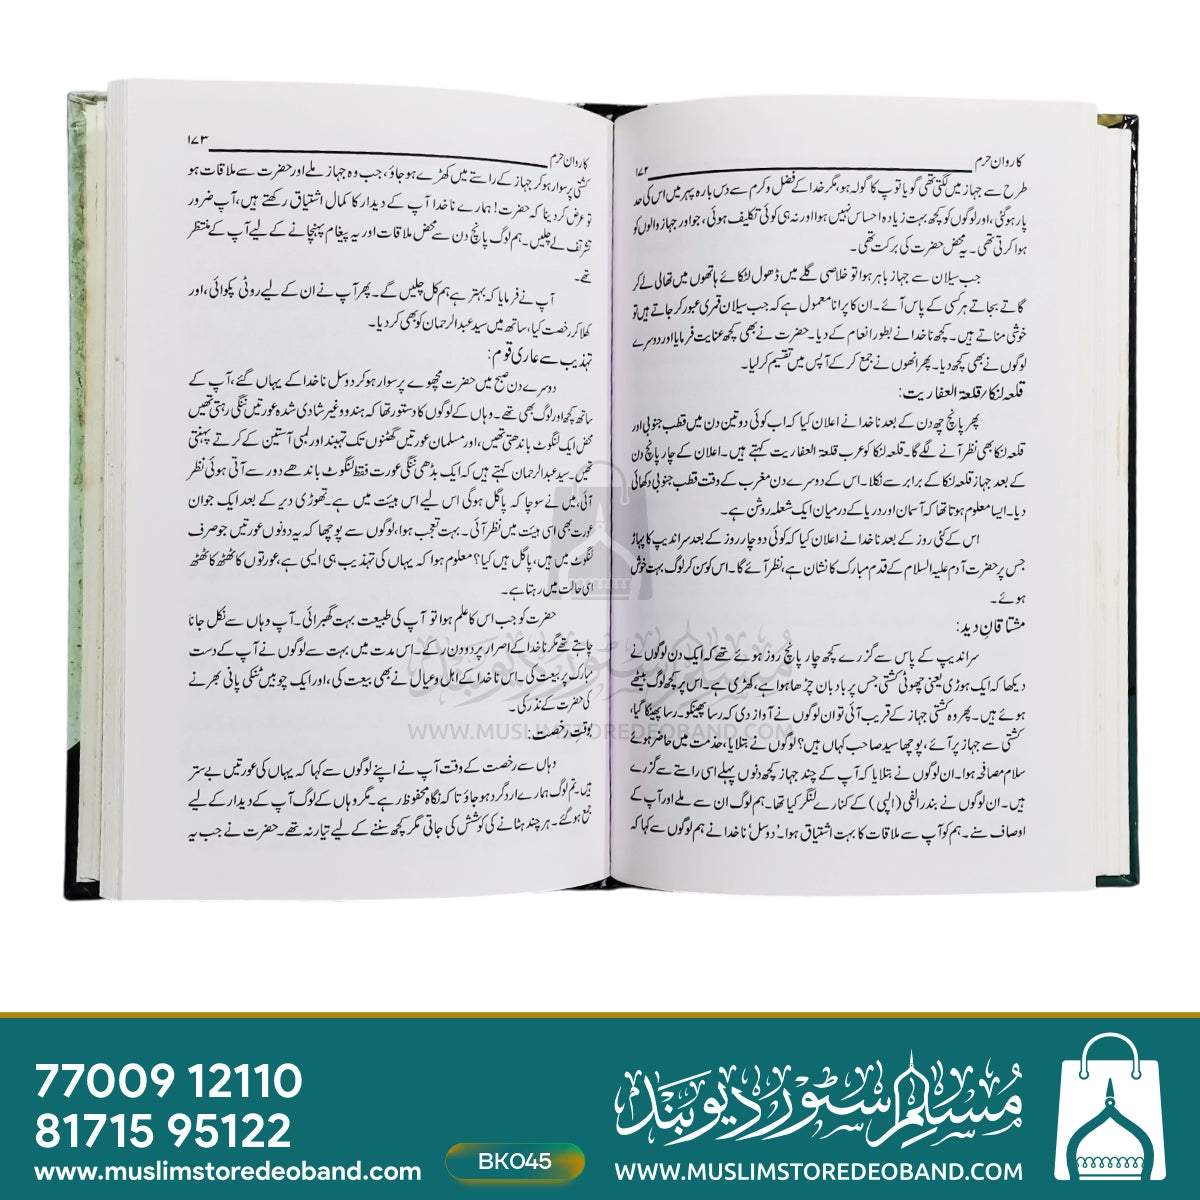 کاروان حرم
۱۷۲
طرح سے جہاز میں لگتی تھی گویا توپ کا گولہ ہو، مگر خدا کے فضل و کرم سے دس بارہ پہر میں اس کی حد
پار ہو گئی، اور لوگوں کو کچھ بہت زیادہ احساس نہیں ہوا اور نہ ہی کوئی تکلیف ہوئی، جو اور جہاز والوں کو
ہوا کرتی تھی۔ یہ محض حضرت کی برکت تھی۔
جب سیلان سے جہاز باہر ہوا تو خلاصی گلے میں ڈھول لٹکائے ہاتھوں میں تھالی لے کر
گاتے بجاتے ہر کسی کے پاس آئے۔ ان کا پرانا معمول ہے کہ جب سیلان قمری عبور کر جاتے ہیں تو
خوشی مناتے ہیں۔ کچھ ناخدا نے بطور انعام کے دیا۔ حضرت نے بھی کچھ عنایت فرمایا اور دوسرے
لوگوں نے بھی کچھ دیا۔ پھر انھوں نے جمع کر کے آپس میں تقسیم کر لیا۔
قلعہ لنکا / قلعۃ العفاریت:
پھر پانچ چھ دن کے بعد ناخدا نے اعلان کیا کہ اب کوئی دو تین دن میں قطب جنوبی اور
قلعہ لنکا بھی نظر آنے لگے گا۔ قلعہ لنکا کو عرب قلعۃ العفاریت کہتے ہیں۔ اعلان کے چار پانچ دن
کے بعد جہاز قلعہ لنکا کے برابر سے نکلا۔ اس کے دوسرے دن مغرب کے وقت قطب جنوبی دکھائی
دیا۔ ایسا معلوم ہوتا تھا کہ آسمان اور دریا کے درمیان ایک شعلہ روشن ہے۔
اس کے کئی روز کے بعد ناخدا نے اعلان کیا کہ کوئی دو چار روز کے بعد سراندیپ کا پہاڑ
جس پر حضرت آدم علیہ السلام کے قدم مبارک کا نشان ہے، نظر آئے گا۔ اس کو سن کر لوگ بہت خوش
ہوئے۔
مشتاقانِ دید:
سراندیپ کے پاس سے گزرے کچھ چار پانچ روز ہوئے تھے کہ ایک دن لوگوں نے
دیکھا کہ ایک ہوڑی یعنی چھوٹی کشتی جس پر بادبان چڑھا ہوا ہے، کھڑی ہے۔ اس پر کچھ لوگ بیٹھے
ہوئے ہیں۔ پھر وہ کشتی جہاز کے قریب آئی تو ان لوگوں نے آواز دی کہ رسا پھینکو۔ رسا پھینکا گیا،
کشتی سے جہاز پر آئے، پوچھا سید صاحب کہاں ہیں؟ لوگوں نے بتلایا، خدمت میں حاضر ہوئے
سلام مصافحہ ہوا۔ ان لوگوں نے بتلایا کہ آپ کے چند جہاز کچھ دنوں پہلے اسی راستے سے گزرے
ہیں۔ ان لوگوں نے بندر الفی (الپی) کے کنارے لنگر کیا تھا۔ ہم لوگ ان سے ملے اور آپ کے
اوصاف سنے۔ ہم کو آپ سے ملاقات کا بہت اشتیاق ہوا۔ 'دوسل' ناخدا نے ہم لوگوں سے کہا کہ
۱۷۳
کاروان حرم
کشتی پر سوار ہو کر جہاز کے راستے میں کھڑے ہو جاؤ، جب وہ جہاز ملے اور حضرت سے ملاقات ہو
تو عرض کر دینا کہ حضرت! ہمارے ناخدا آپ کے دیدار کا کمال اشتیاق رکھتے ہیں، آپ ضرور
تشریف لے چلیں۔ ہم لوگ پانچ دن سے محض ملاقات اور یہ پیغام پہنچانے کے لیے آپ کے منتظر
تھے۔
آپ نے فرمایا کہ بہتر ہے ہم کل چلیں گے۔ پھر آپ نے ان کے لیے روٹی پکوائی، اور
کھلا کر رخصت کیا، ساتھ میں سید عبدالرحمان کو بھی کر دیا۔
تہذیب سے عاری قوم:
دوسرے دن صبح میں حضرت مچھوے پر سوار ہو کر دوسل ناخدا کے یہاں گئے، آپ کے
ساتھ کچھ اور لوگ بھی تھے۔ وہاں کے لوگوں کا دستور تھا کہ ہندو و غیر شادی شدہ عورتیں ننگی رہتی تھیں
محض ایک لنگوٹ باندھتی تھیں، اور مسلمان عورتیں گھٹنوں تک تہبند اور لمبی آستین کے کرتے پہنتی
تھیں۔ سید عبدالرحمان کہتے ہیں کہ ایک بڈھی ننگی عورت فقط لنگوٹ باندھے دور سے آتی ہوئی نظر
آئی، میں نے سوچا کہ پاگل ہوگی اس لیے اس ہیئت میں ہے۔ تھوڑی دیر کے بعد ایک جوان
عورت بھی اسی ہیئت میں نظر آئی۔ بہت تعجب ہوا، لوگوں سے پوچھا کہ یہ دونوں عورتیں جو صرف
لنگوٹ میں ہیں، پاگل ہیں کیا؟ معلوم ہوا کہ یہاں کی تہذیب ہی ایسی ہے، عورتوں کا ٹھٹھ کا ٹھٹھ
اسی حالت میں رہتا ہے۔
حضرت کو جب اس کا علم ہوا تو آپ کی طبیعت بہت گھبرائی۔ آپ وہاں سے نکل جانا
چاہتے تھے مگر ناخدا کے اصرار پر دو دن رکے۔ اس مدت میں بہت سے لوگوں نے آپ کے دست
مبارک پر بیعت کی۔ اس ناخدا کے اہل و عیال نے بھی بیعت کی، اور ایک چوبیں ٹنکی پانی بھرنے
کی حضرت کے نذر کی۔
بوقتِ رخصت:
وہاں سے رخصت کے وقت آپ نے اپنے لوگوں سے کہا کہ یہاں کی عورتیں بے ستر
ہیں۔ تم لوگ ہمارے ارد گرد ہو جاؤ تا کہ نگاہ محفوظ رہے۔ مگر وہاں کے لوگ آپ کے دیدار کے لیے
جمع ہو گئے۔ ہر چند ہٹانے کی کوشش کی جاتی مگر کچھ سننے کے لیے تیار نہ تھے۔ حضرت نے جب یہ
مسلم سٹور دیوبند
WWW.MUSLIMSTOREDEOBAND.COM
77009 12110
81715 95122
www.muslimstoredeoband.com
BK045
مسلم سٹور دیوبند
WWW.MUSLIMSTOREDEOBAND.COM